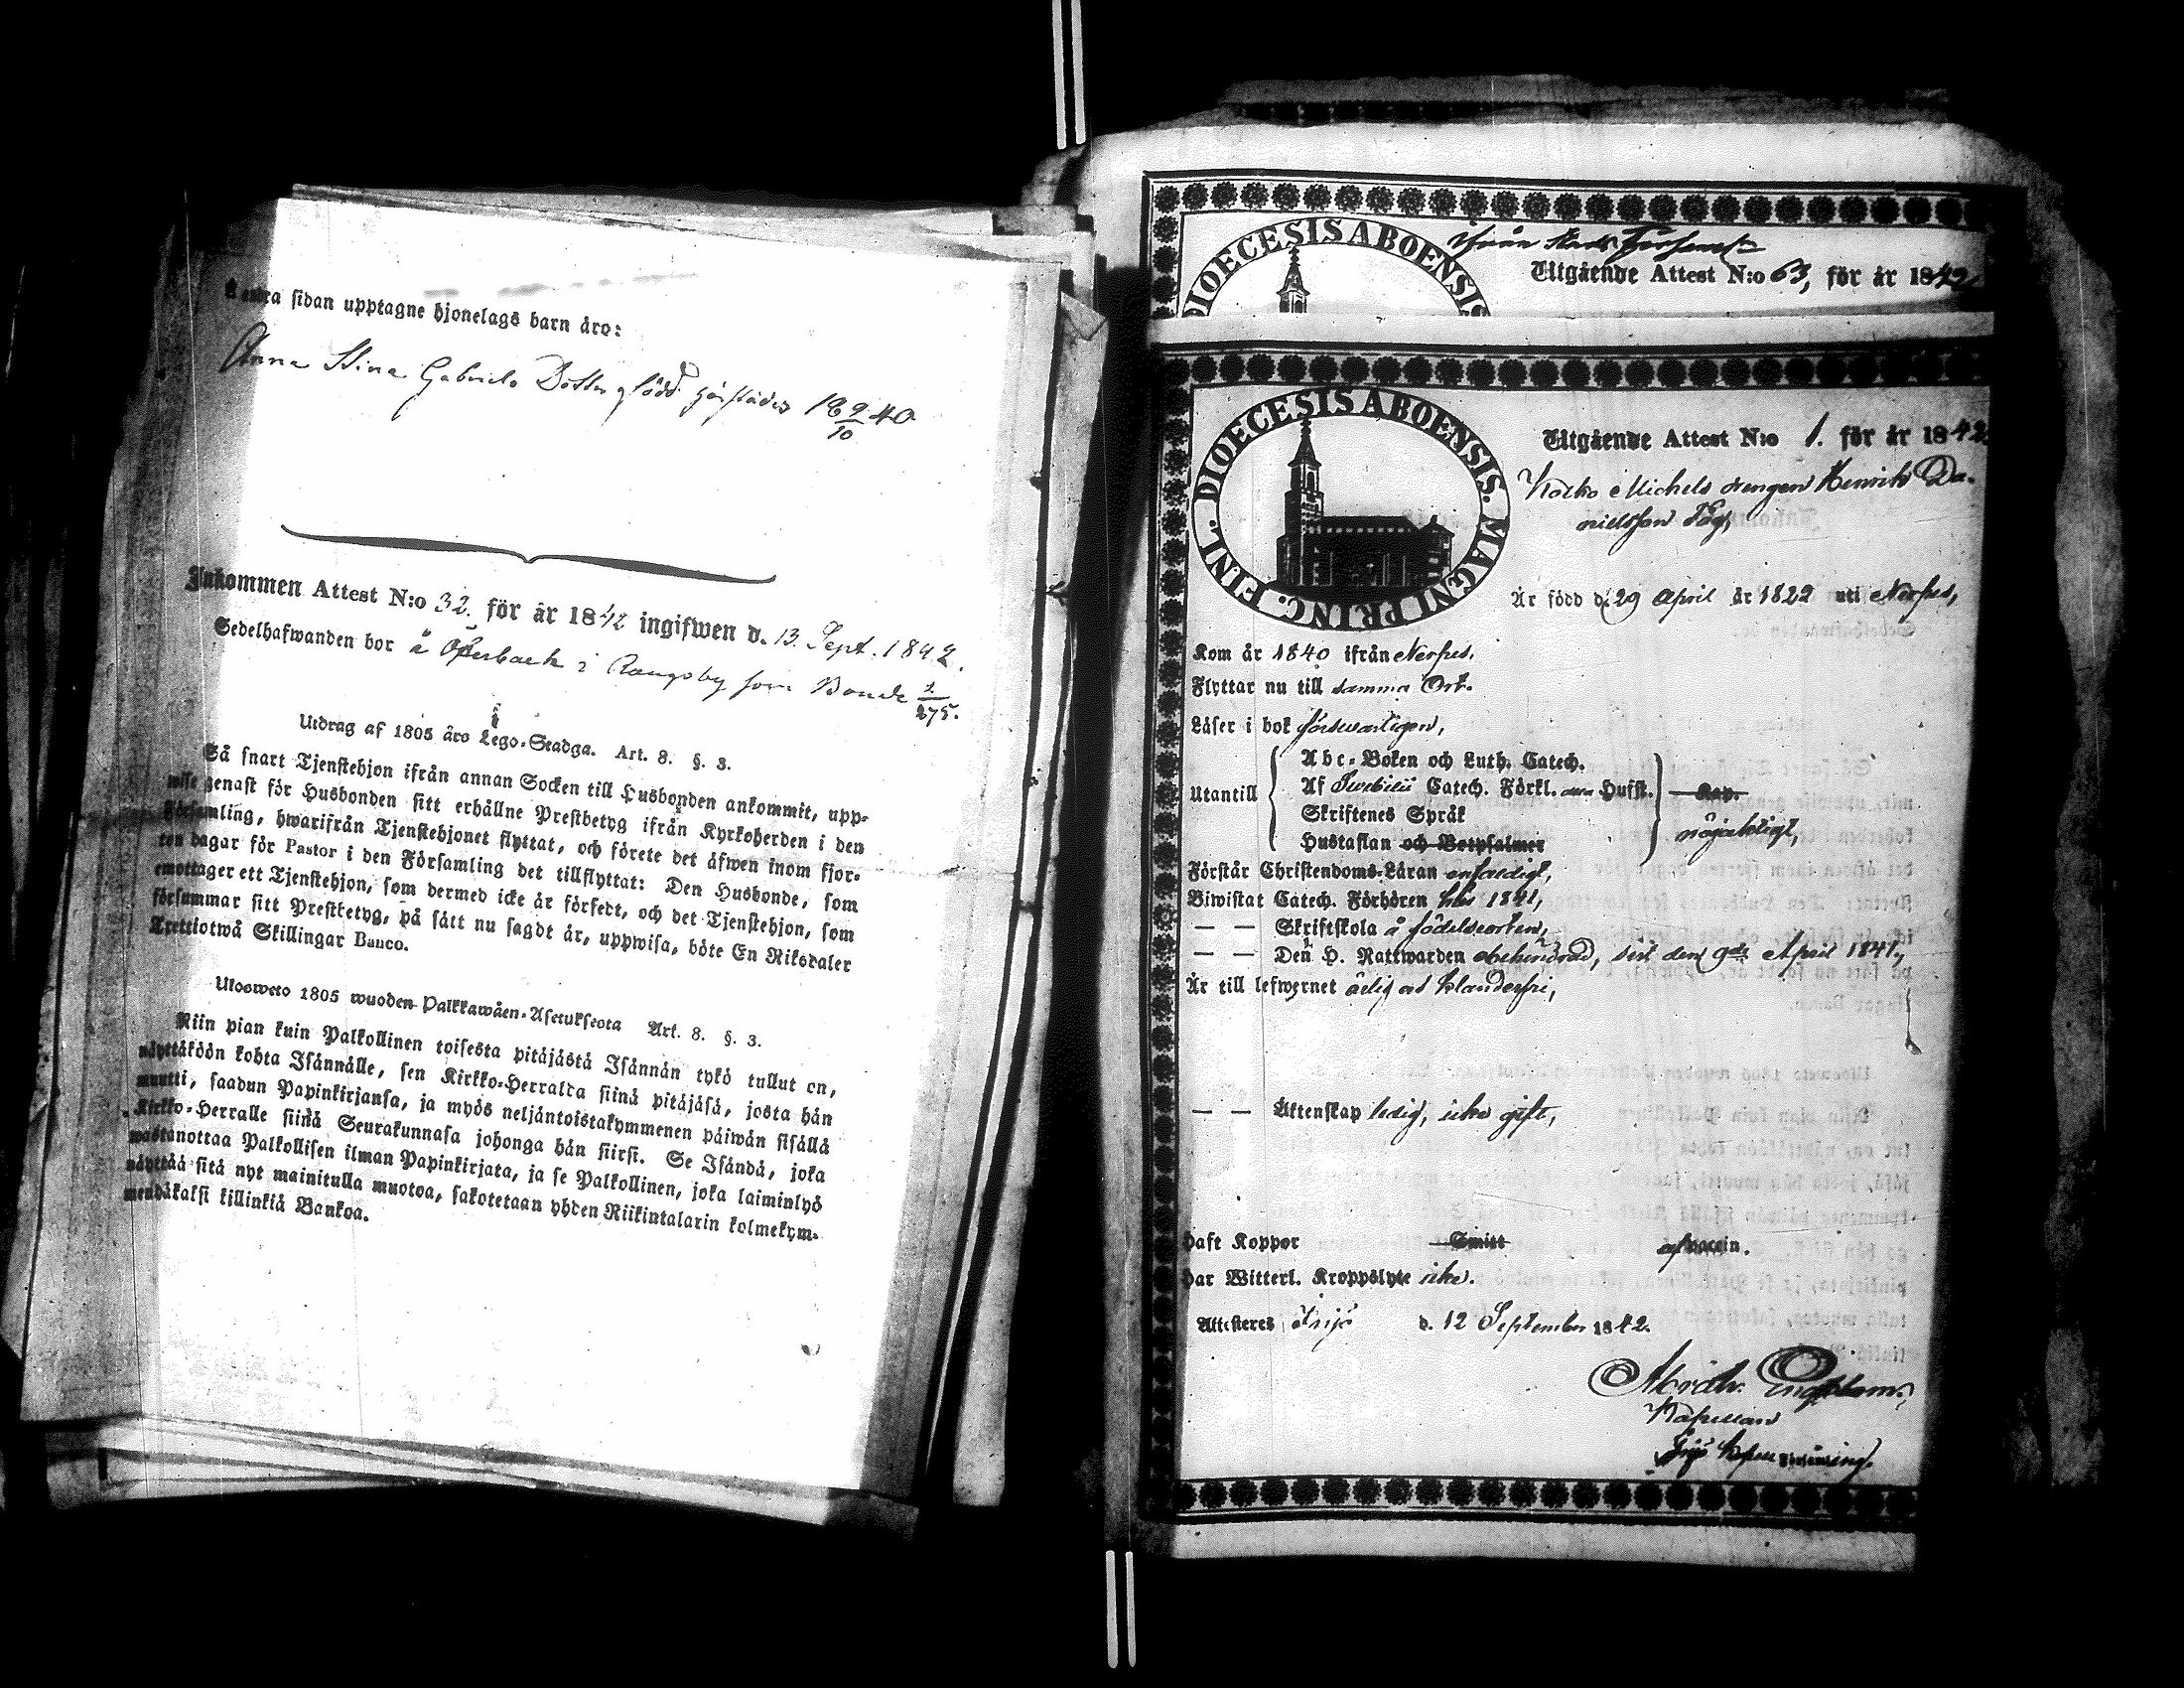 å andra sidan upptagne hjonelags barn äro:
Anna Stina Gabriels Dotter född härstädes 18 9/10 40
Inkommen Attest N:o 32. för år 1842 ingifwen d. 13. Sept. 1842.
Sedelhafwanden bor å Öfverback i Rangsby som Bonde 1/275.
Utdrag af 1805 års Lego-Stadga. Art. 8. §. 3.
Så snart Tjenstehjon ifrån annan Socken till Husbonden ankommit, upp-
wise genast för Husbonden sitt erhållne Prestbetyg ifrån Kyrkoherden i den
Församling, hwarifrån Tjenstehjonet flyttat, och förete det äfwen inom fjor-
ton dagar för Pastor i den Församling det tillflyttat: Den Husbonde, som
emottager ett Tjenstehjon, som dermed icke är försedt, och det Tjenstehjon, som
försummar sitt Prestbetyg, på sätt nu sagdt är, uppwisa, böte En Riksdaler
Trettiotwå Skillingar Banco.
Ulosweto 1805 wuoden Palkkawäen-Asetuksesta Art. 8. §. 3.
Niin pian kuin Palkollinen toisesta pitäjästä Isännän tykö tullut on,
näyttäköön kohta Isännälle, sen Kirkko-Herralda siinä pitäjäsä, josta hän
muutti, saadun Papinkirjansa, ja myös neljäntoistakymmenen päiwän sisällä
Kirkko-Herralle siinä Seurakunnasa johonga hän siirsi. Se Isändä, joka
wastanottaa Palkollisen ilman Papinkirjata, ja se Palkollinen, joka laiminlyö
näyttää sitä nyt mainitulla muotoa, sakotetaan yhden Riikintalarin kolmekym-
mendäkaksi killinkiä Bankoa.
DIOECESIS ABOENSIS
Utgående Attest N:o 63, för år 1842
DIOECESIS ABOENSIS. MAGNI PRINC. FINL.
Utgående Attest N:o 1. för år 1842
Michels drengen Henrik Da-
nielsson
Är född d. 29 April år 1822 uti Nerpes,
Kom år 1840 ifrån Nerpes.
Flyttar nu till samma Ort.
Läser i bok försvarligen,
Utantill
Abc-Boken och Luth. Catech.
Af Svebilii Catech. Förkl. Hufst.
Skriftenes Språk
Hustaflan och Botpsalmer
Kap.
nöjaktigt,
Förstår Christendoms-Läran enfaldigt,
Biwistat Catech. Förhören här 1841,
— — Skriftskola å födelseorten,
— — Den H. Nattwarden obehindrad, sist den 9de April 1841,
Är till lefwernet ärlig och klanderfri,
— — Äktenskap ledig, icke gift,
Haft Koppor Smitt af vaccin.
Har Witterl. Kroppslyte icke.
Attesteres, Örijö d. 12 September 1842.
Kapellan